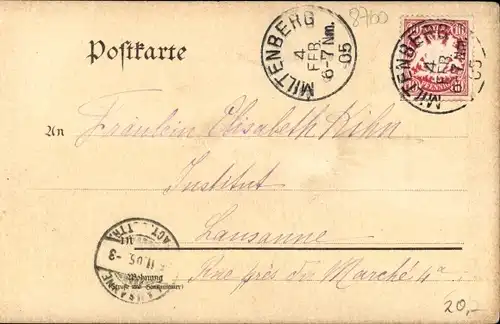 8760
Postkarte
MILTENBERG
4
FEB.
6-7 Nm.
05
MILTENBERG
4
FEB.
6-7 Nm.
05
An Fräulein Elisabeth Kihn
Institut
in Lausanne
Wohnung
(Straße und Hausnummer)
Rue près du Marché 4a
LAUSANNE
II.05.-3
20,-